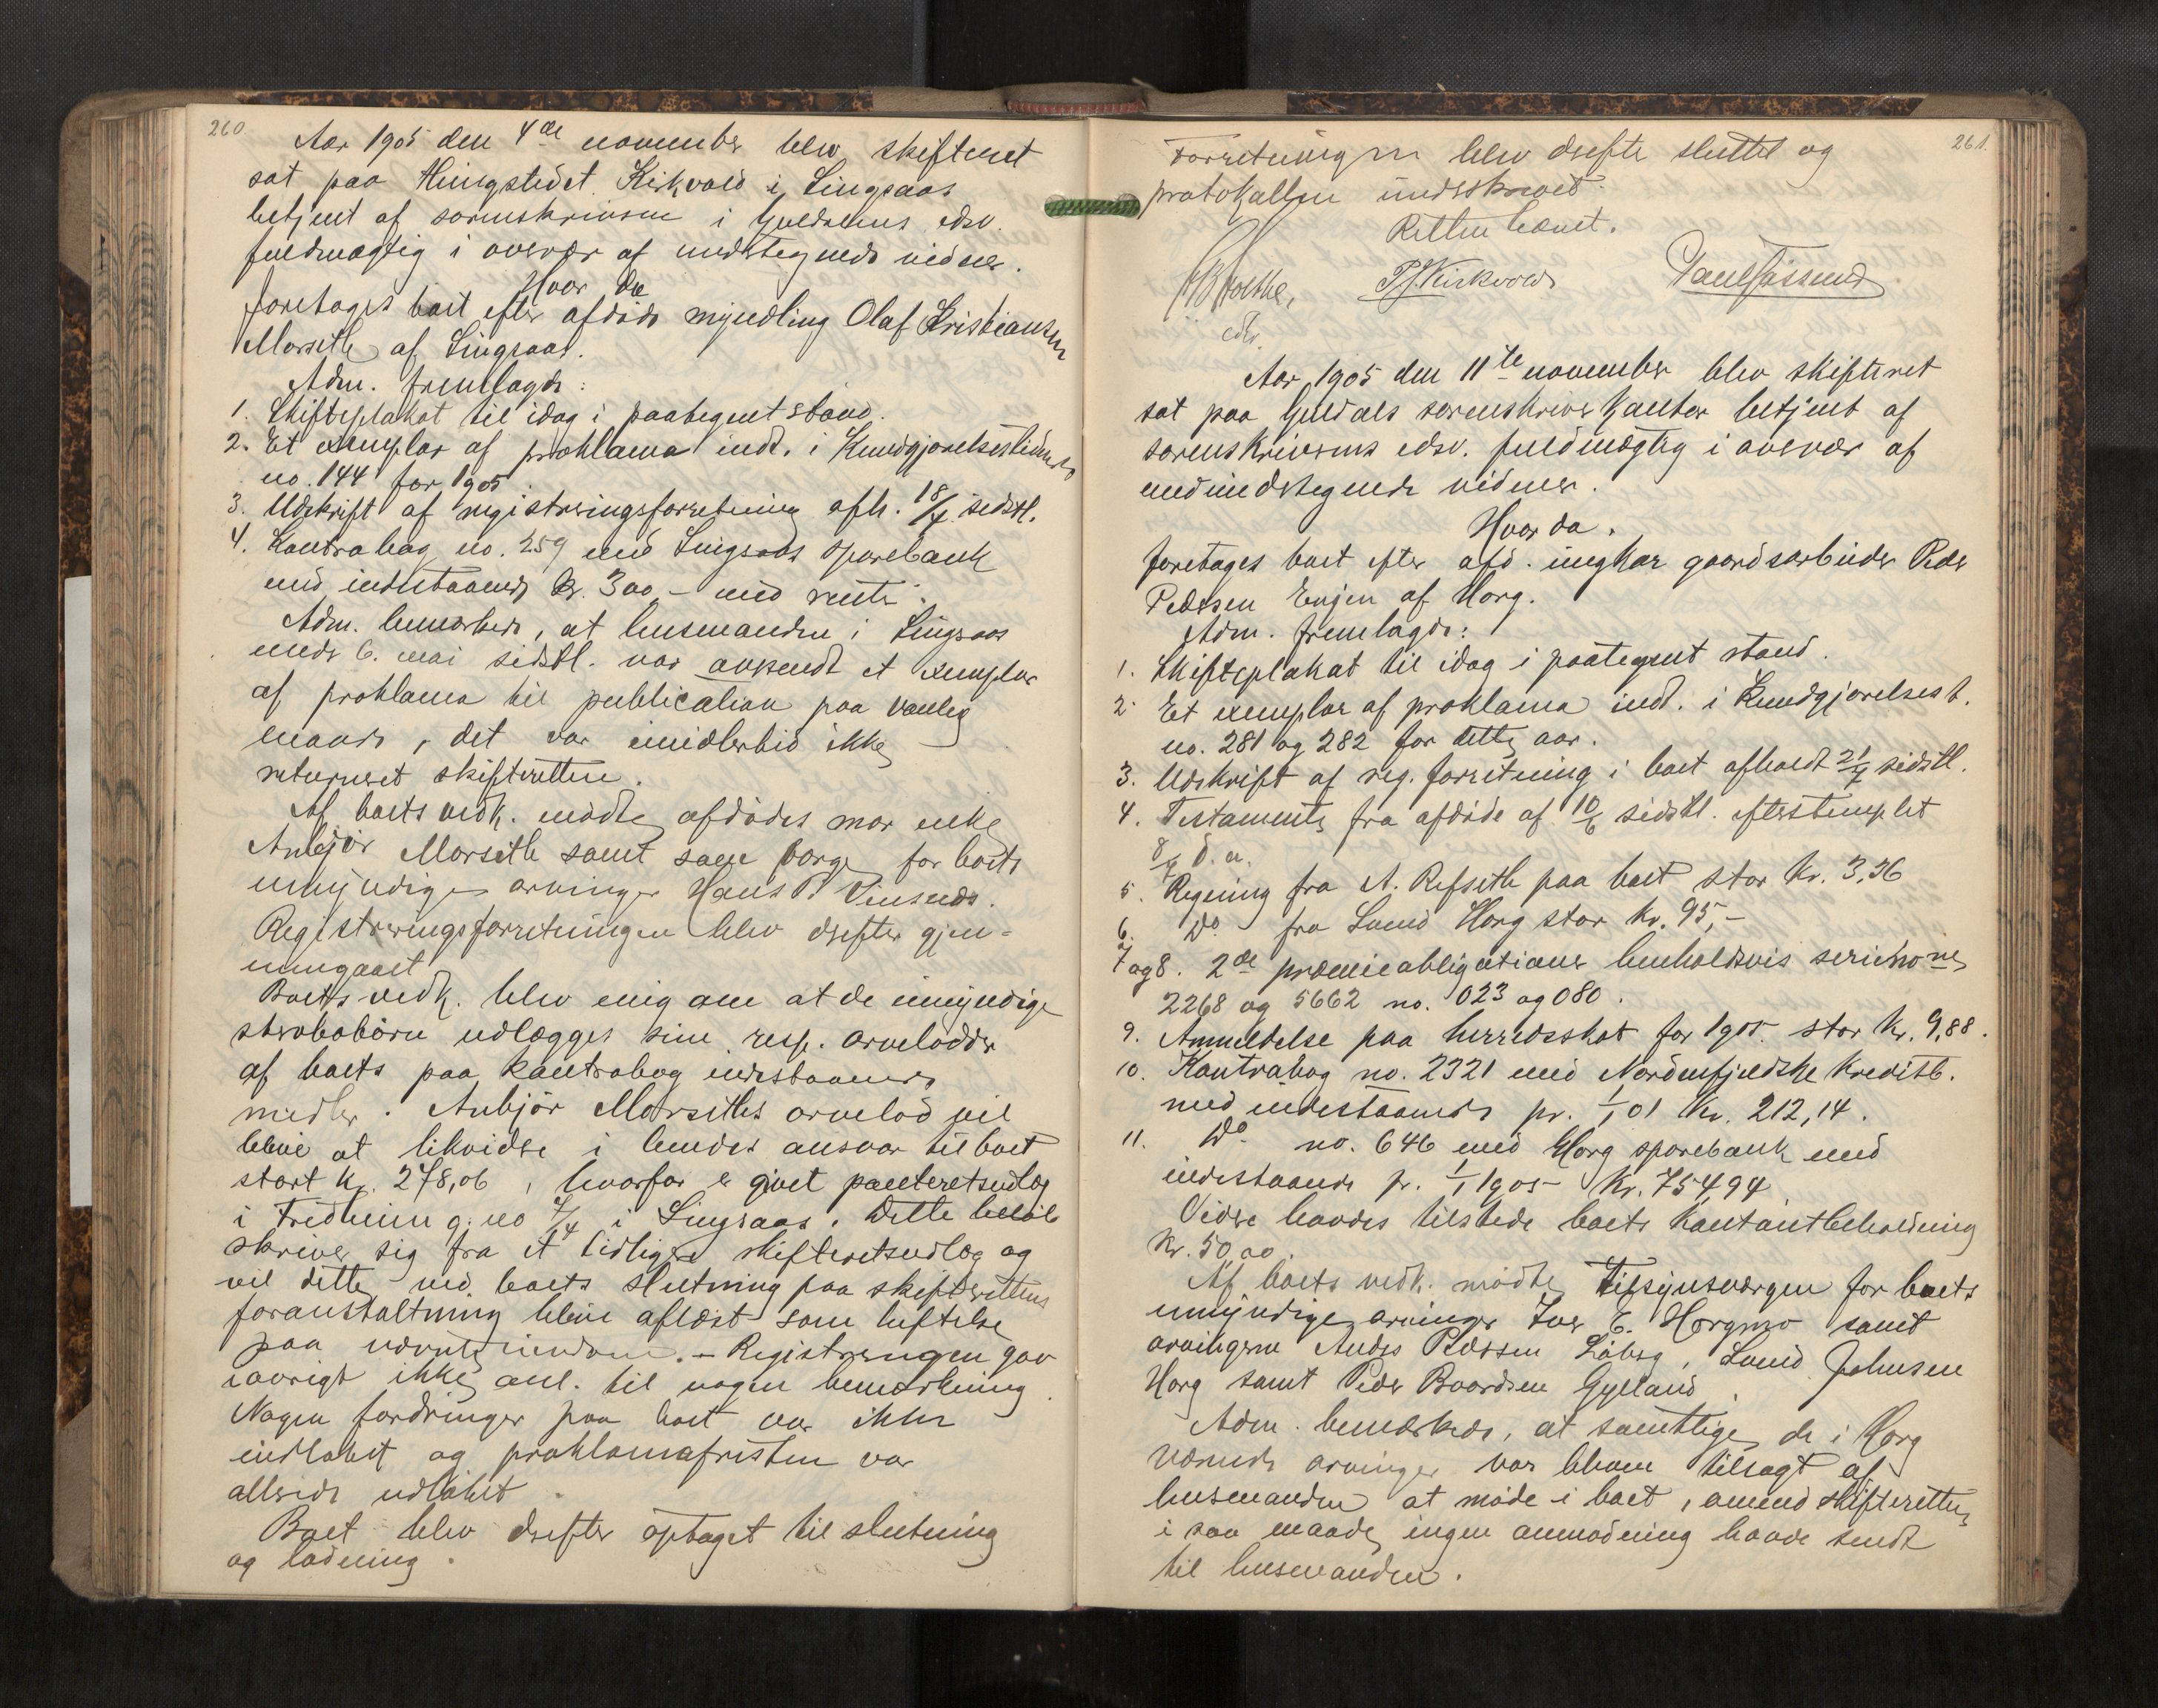 260.
Aar 1905 den 4de november blev skifteret
sat paa thingstedet Kirkvold i Singsaas
betjent af sorenskriveren i Guldalens edsv.
fuldmægtig i overvær af undertegnede vidner.
Hvor da
foretoges boet efter afdøde myndling Olaf Kristiansen
Morseth af Singsaas.
Adm. fremlagde:
1. Skifteplakat til idag i paategnet stand.
2. Et exemplar af proklama indt. i Kundgjørelsestidende
no. 144 for 1905.
3. Udskrift af registreringsforretning afh. 18/4 sidstl.
4. Kontrabog no. 259 med Singsaas sparebank
med indestaaende kr. 300,- med rente.
Adm. bemærkede, at lensmanden i Singsaas
under 6. mai sidstl. var avsendt et exemplar
af proklama til publication paa vanlig
maade, det var imidlertid ikke
returneret skifteretten.
Af boets vedk. mødte afdødes mor enke
Anbjør Morseth samt som verge for boets
umyndige arvinger Hans P. Vinsnes.
Registreringsforretningen blev derefter gjen-
nemgaaet
Boets vedk. blev enig om at de umyndige
stervbobørn udlægges sine resp. arvelodder
af boets paa kontrabog indestaaende
midler. Anbjør Morseths arvelod vil
blive at likvidere i hendes ansvar til boet
stort kr. 278,06, hvorfor er givet panteretsudlæg
i Fredheim g. no 7/4 i Singsaas. Dette beløb
skriver sig fra et tidligere skifteretsudlæg og
vil dette ved boets slutning paa skifterettens
foranstaltning blive aflæst som heftelse
paa nævnte eiendom. - Registreringen gav
iøvrigt ikke anl. til nogen bemærkning.
Nogen fordringer paa boet var ikke
indløbet og proklamafristen var
allerede udløbet.
Boet blev derefter optaget til slutning
og lodning.
261.
Forretningen blev derefter sluttet og
protokollen underskrevet.
Retten hævet.
P. J. Kirkvold
edsv.
Aar 1905 den 11te november blev skifteret
sat paa Guldals sorenskriverkontor betjent af
sorenskriverens edsv. fuldmægtig i overvær af
medundertegnede vidner.
Hvor da.
foretoges boet efter afd. ungkar gaardsarbeider Peder
Pedersen Engen af Horg.
Adm. fremlagde:
1. Skifteplakat til idag i paategnet stand.
2. Et exemplar af proklama indt. i Kundgjørelsest.
no. 281 og 282 for dette aar.
3. Udskrift af reg. forretning i boet afholdt 21/7 sidstl.
4. Testamente fra afdøde af 10/6 sidstl. efterstemplet
8/7 d. a.
5. Regning fra A. Refseth paa boet stor kr. 3,36
6. Do fra Svend Horg stor kr. 95,-
7 og 8. 2de præmieobligationer henholdsvis serie no ne
2268 og 5662 no. 023 og 080.
9. Anmeldelse paa herredsskat for 1905 stor kr. 9,88.
10. Kontrabog no. 2321 med Nordenfjeldske kreditb.
med indestaaende pr. 1/1 01 kr. 212,14.
11. Do no. 646 med Horg sparebank med
indestaaende pr. 1/1 1905 kr. 754,94
Videre havdes tilstede boets kontantbeholdning
kr. 50,00.
Af boets vedk. mødte tilsynsværgen for boets
umyndige arvinger Iver E. Horgmo samt
arvingerne Anders Pedersen Løberg, Svend Johnsen
Horg samt Peder Baardsen Gylland.
Adm. bemærkede, at samtlige de i Horg
værende arvinger var bleven tilsagt af
lensmanden at møde i boet, omend skifteretten
i saa maade ingen anmodning havde sendt
til lensmanden.